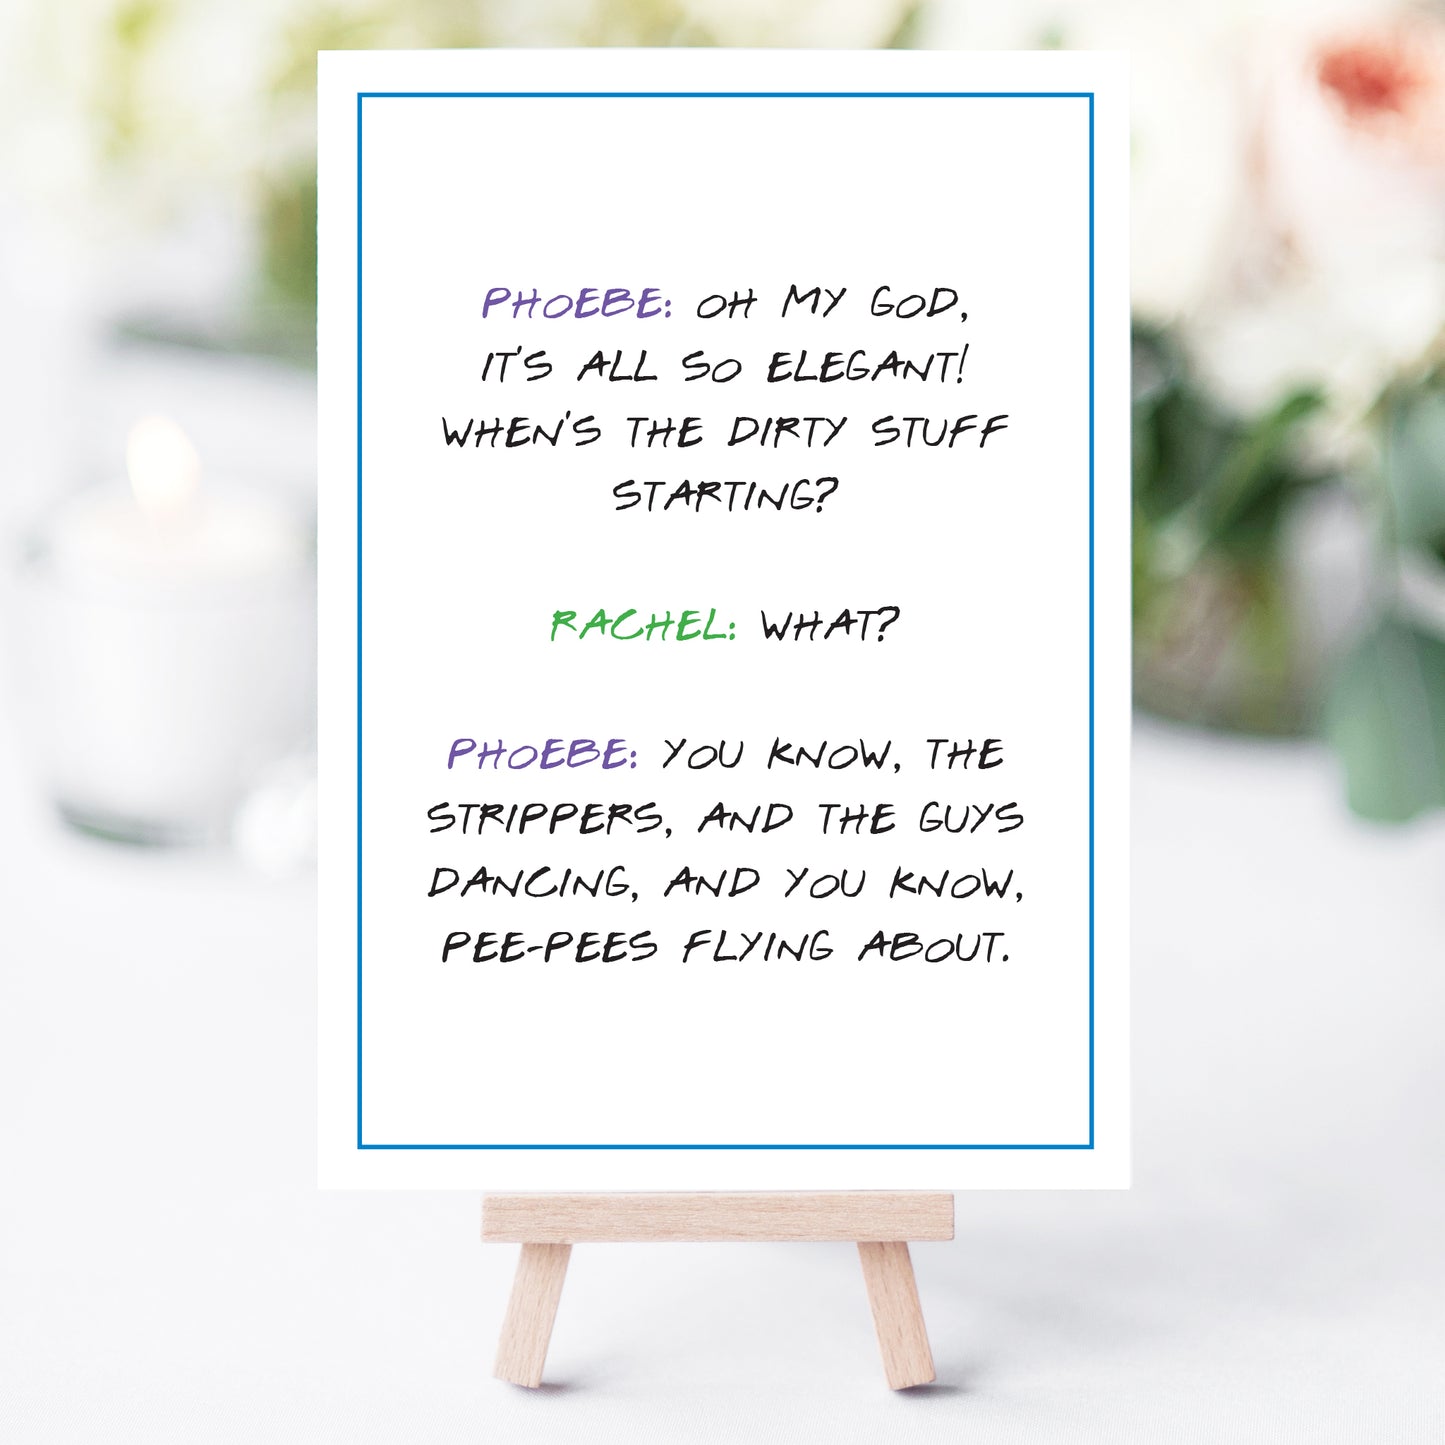 PHOEBE: OH MY GOD,
IT'S ALL SO ELEGANT!
WHEN'S THE DIRTY STUFF
STARTING?
RACHEL: WHAT?
PHOEBE: YOU KNOW, THE
STRIPPERS, AND THE GUYS
DANCING, AND YOU KNOW,
PEE-PEES FLYING ABOUT.